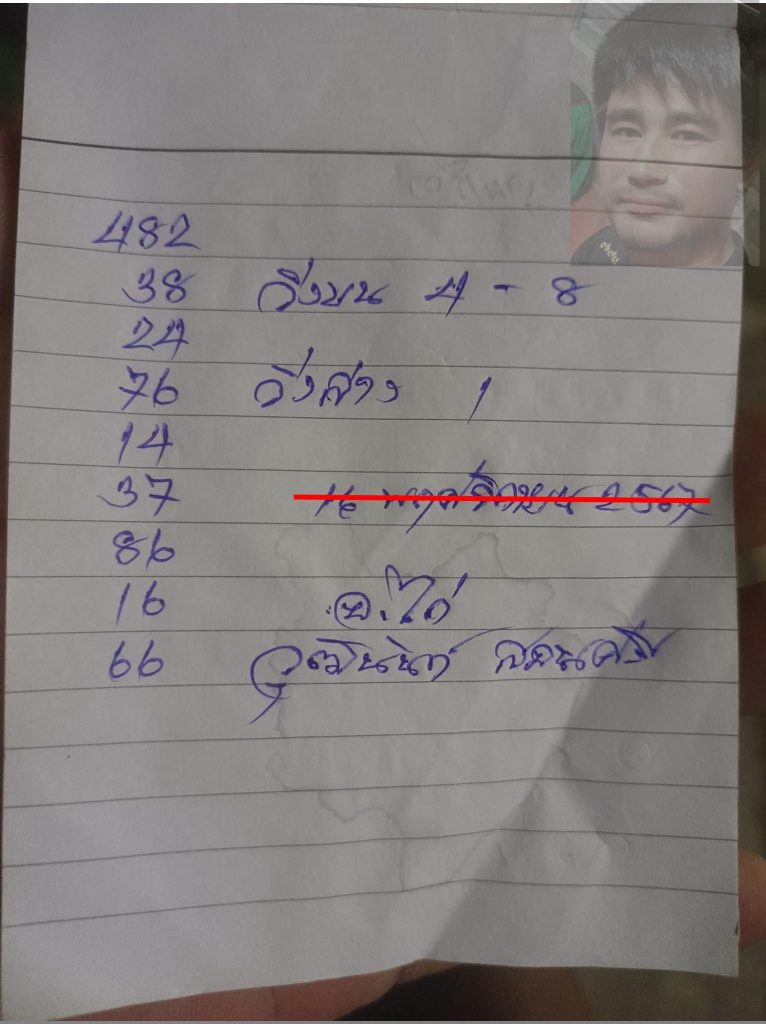 482
38 วิ่งบน 4 - 8
24
76 วิ่งล่าง 1
14
37 16 พฤศจิกายน 2567
86
16 อ.ไก่
66 วุฒินันท์